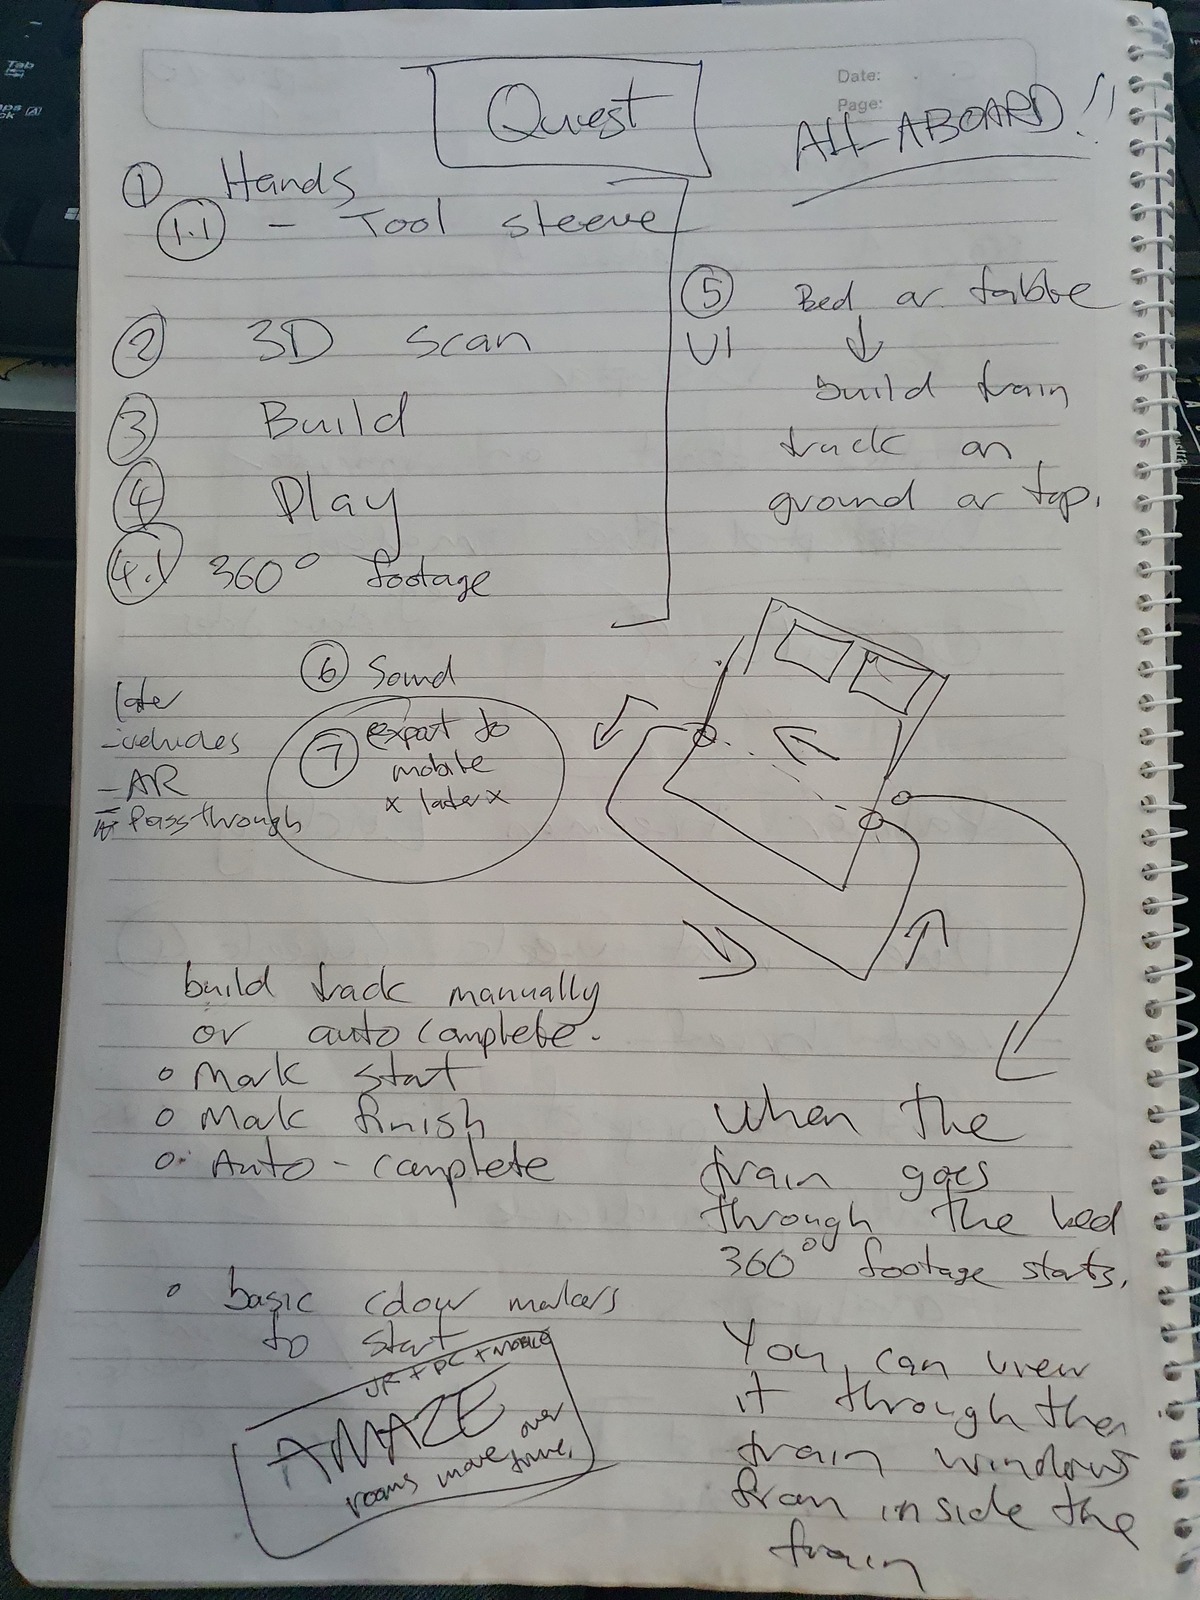 Date:
Page:
Quest
ALL ABOARD!!
1 Hands
1.1 - Tool sleeve
2 3D scan
3 Build
4 Play
4.1 360° footage
5 Bed or table
UI ↓
build train
track on
ground or top.
6 Sound
7 export to
mobile
x later x
later
- vehicles
- AR
Passthrough
build track manually
or auto complete.
o Mark start
o Mark finish
o Auto-complete
o basic colour markers
to start
VR + PC + MOBILE
AMAZE
rooms move over
time.
When the
train goes
through the bed
360° footage starts.
You can view
it through the
train windows
from inside the
train
Tab